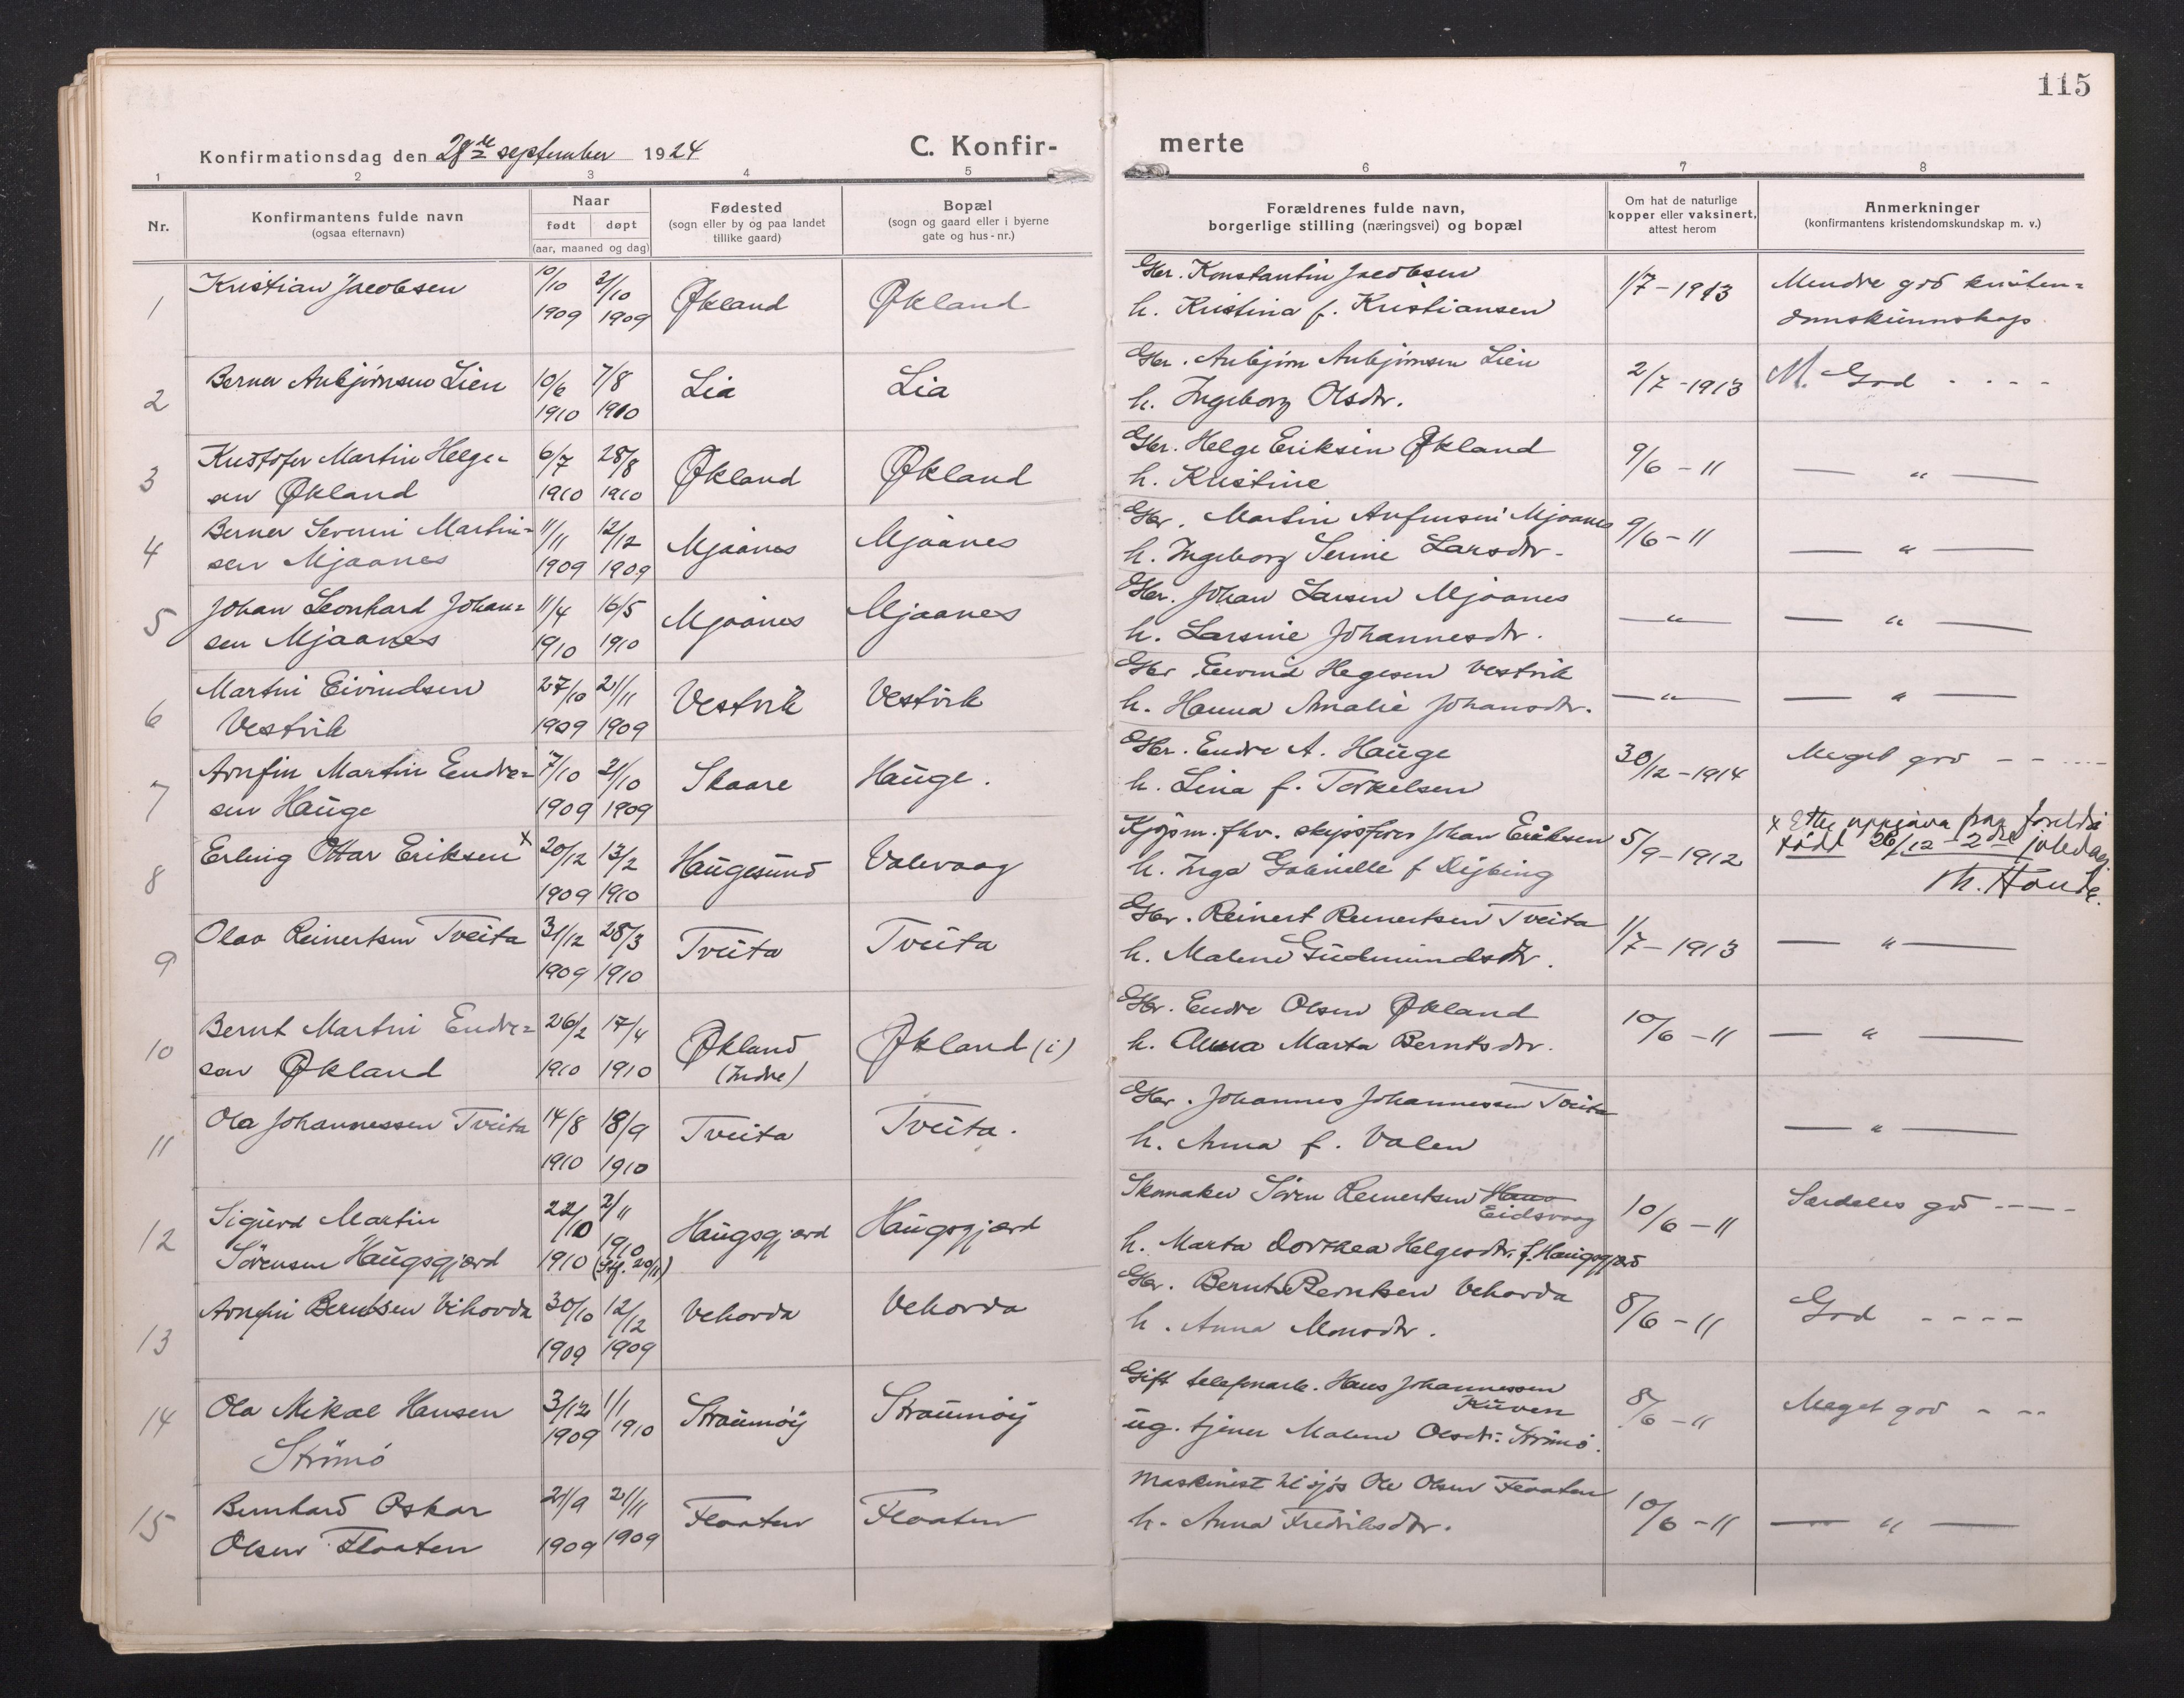 115
Konfirmationsdag den 28de september 1924
C. Konfir-
merte
1 2 3 4 5 6 7 8
Nr.
Konfirmantens fulde navn
(ogsaa efternavn)
Naar
født døpt
(aar, maaned og dag)
Fødested
(sogn eller by og paa landet
tillike gaard)
Bopæl
(sogn og gaard eller i byerne
gate og hus-nr.)
Forældrenes fulde navn,
borgerlige stilling (næringsvei) og bopæl
Om hat de naturlige
kopper eller vaksinert,
attest herom
Anmerkninger
(konfirmantens kristendomskundskap m. v.)
1 Kristian Jacobsen 10/10 1909 31/10 1909 Økland Økland Gbr. Konstantin Jacobsen 1/7-1913 Mindre god kristen=
h. Kristina f. Kristiansen domskunnskap
2 Berner Anbjørnsen Lien 10/6 1910 7/8 1910 Lia Lia Gbr. Anbjørn Anbjørnsen Lien 2/7-1913 M. God - - - -
h. Ingeborg Olsdtr.
3 Kristofer Martin Helge= 6/7 1910 28/8 1910 Økland Økland Gbr. Helge Eriksen Økland 9/6 - 11 — " —
sen Økland h. Kristine
4 Berner Severin Martin= 11/11 1909 12/12 1909 Mjaanes Mjaanes Gbr. Martin Anfinsen Mjaanes 9/6 - 11 — " —
sen Mjaanes h. Ingeborg Serine Larsdtr.
5 Johan Leonhard Johan= 11/4 1910 16/5 1910 Mjaanes Mjaanes Gbr. Johan Larsen Mjaanes — " — — " —
sen Mjaanes h. Larsine Johannesdtr.
6 Martin Eivindsen 27/10 1909 21/11 1909 Vestvik Vestvik Gbr. Eivind Hegesen Vestvik — " — — " —
Vestvik h. Hanna Amalie Johansdtr.
7 Arnfin Martin Endre= 7/10 1909 21/10 1909 Skaare Hauge. Gbr. Endre A. Hauge 30/12-1914 Meget god - - ...
sen Hauge h. Lina f. Torkelsen
8 Erling Ottar Eriksen x 20/12 1909 13/2 1910 Haugesund Valevaag Kjøpm. fhv. skipsfører Johan Eriksen 5/9-1912 x Etter uppgava fraa foreldri
h. Inga Gabrielle f. født 26/12 - 2dre joledag.
Th. Hovda.
9 Olav Reinertsen Tveita 31/12 1909 28/3 1910 Tveita Tveita Gbr. Reinert Reinertsen Tveita 1/7-1913 — " —
h. Malene Gudmundsdtr.
10 Bernt Martin Endre= 26/2 1910 17/4 1910 Økland (Indre) Økland (i) Gbr. Endre Olsen Økland 10/6 - 11 — " —
sen Økland h. Anna Marta Berntsdtr.
11 Ola Johannessen Tveita 14/8 1910 18/9 1910 Tveita Tveita. Gbr. Johannes Johannessen Tveita — " —
h. Anna f. Valen
12 Sigurd Martin 22/10 1910 2/11 1910 (Stf. 20/11) Haugsgjærd Haugsgjærd Skomaker Søren Reinertsen Eidsvaag 10/6 - 11 Særdeles god - - - -
Sørensen Haugsgjærd h. Marta Dorthea Helgesdtr. f. Haugsgjærd
13 Arnfin Berntsen Vihovda 30/10 1909 12/12 1909 Vehovda Vehovda Gbr. Bernt Berntsen Vehovda 8/6 - 11 God - - - -
h. Anna Monsdtr.
14 Ola Mikal Hansen 3/12 1909 1/1 1910 Straumøy Straumøy Gift telefonarb. Hans Johannessen Kuven 8/6 - 11 Meget god - - -
Strömö ug. tjener Malene Olsdtr. Strömö.
15 Bernhard Oskar 21/9 1909 21/11 1909 Flaaten Flaaten Maskinist til sjøs Ole Olsen Flaaten 10/6 - 11 — " —
Olsen Flaaten h. Anna Fredriksdtr.